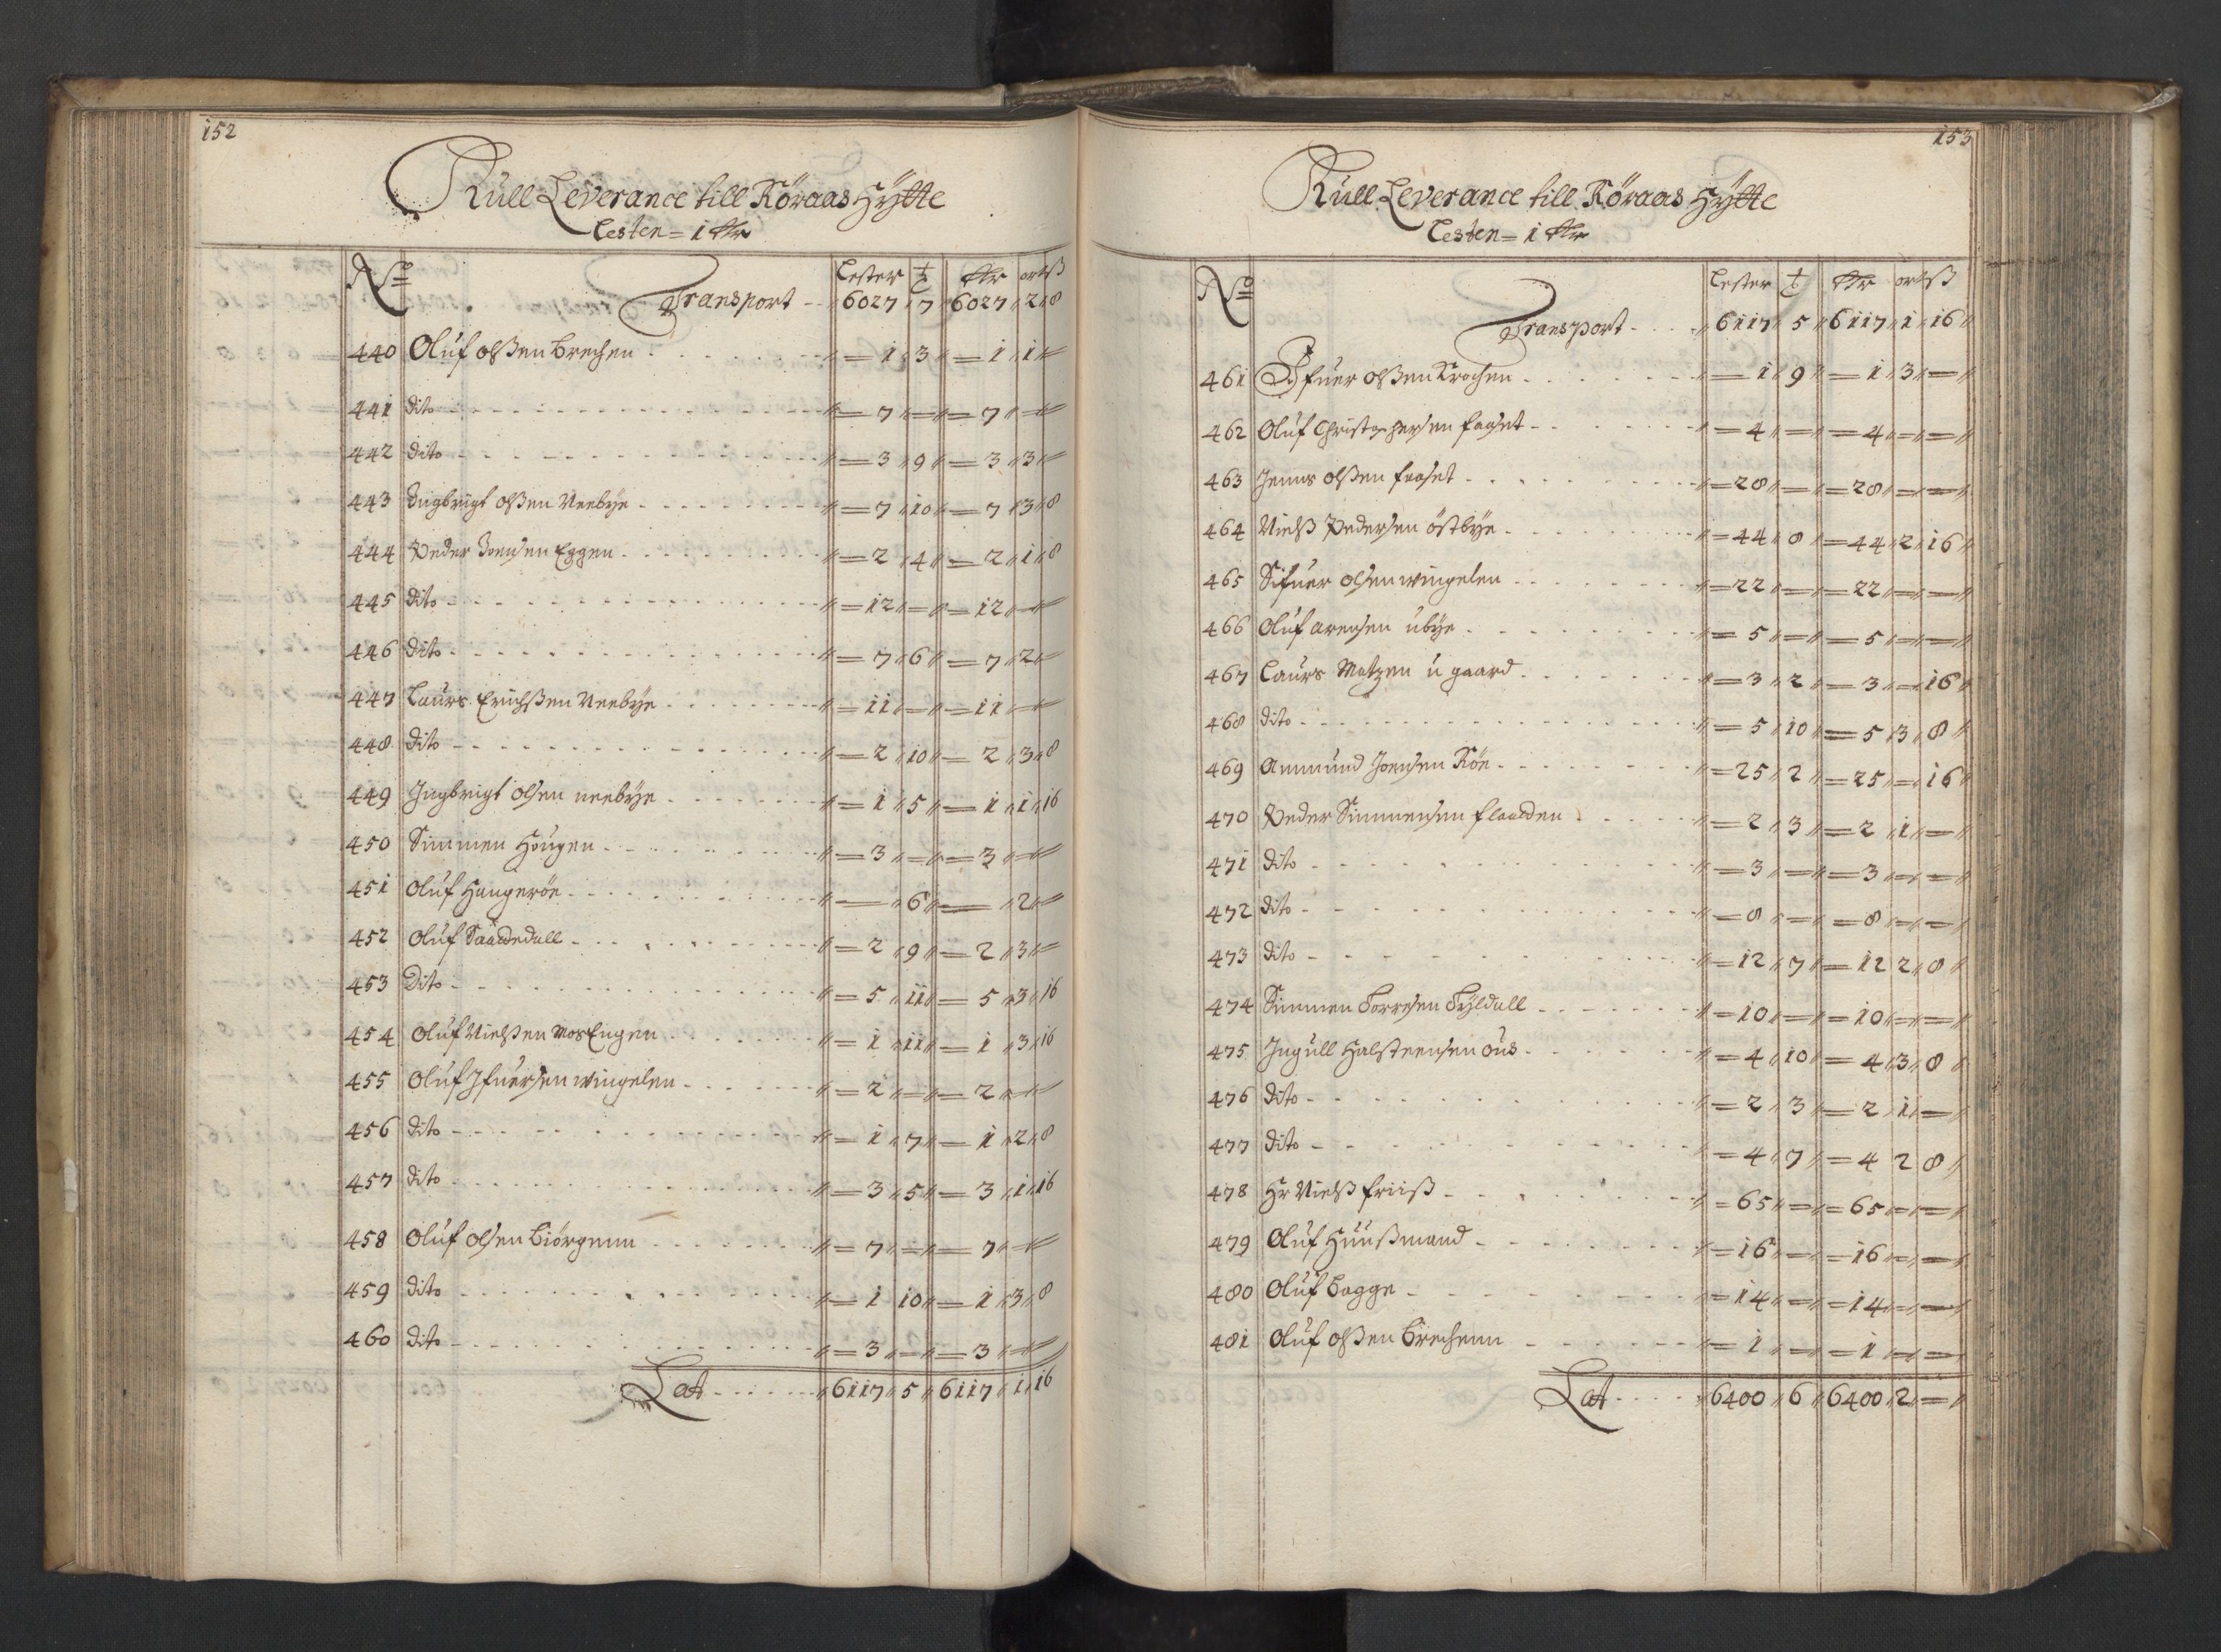 152
Kull Leverance till Röraas Hÿtte
Lesten = 1 Rdr
No Lester t Rdr ort ß
Transport - - 6027 7 6027 2 8
440 Oluf olßen brechen = 1 3 = 1 1 =
441 dito = 7 = = 7 =
442 dito = 3 9 = 3 3 =
443 Ingbrigt olßen Neebÿe = 7 10 = 7 3 8
444 Peder Joensen Eggen = 2 4 = 2 1 8
445 dito = 12 = = 12 =
446 dito = 7 6 = 7 2 =
447 Laurs Erichßen Neebÿe = 11 = = 11 =
448 dito = 2 10 = 2 3 8
449 Ingbrigt olsen neebÿe = 1 5 = 1 1 16
450 Simmen Hougen = 3 = = 3 =
451 Oluf Haugeröe = 6 = 2 =
452 Oluf Saadedall = 2 9 = 2 3 =
453 Dito = 5 11 = 5 3 16
454 Oluf Nielßen MosEngen = 1 11 = 1 3 16
455 Oluf Ifuersen wingelen = 2 = = 2 =
456 dito = 1 7 = 1 2 8
457 dito = 3 5 = 3 1 16
458 Oluf olsen biörgenn = 7 = = 7 =
459 dito = 1 10 = 1 3 8
460 dito = 3 = = 3 =
Lat - - - 6117 5 6117 1 16
153
Kull Leverance till Röraas Hÿtte
Lesten = 1 Rdr
No Lester t Rdr ort ß
Transport - - 6117 5 6117 1 16
461 Ifuer olßen Krochen = 1 9 = 1 3 =
462 Oluf Christophersen faaset = 4 = = 4 = =
463 Jenns olßen faaset = 28 = = 28 = =
464 Nielß Pedersen östbÿe = 44 8 = 44 2 16
465 Sifuer olsen wingelen = 22 = = 22 = =
466 Oluf arensen übÿe = 5 = = 5 = =
467 Laurs Matzen ü gaard = 3 2 = 3 = 16
468 dito = 5 10 = 5 3 8
469 Ammund Joensen Röe = 25 2 = 25 = 16
470 Peder Simmensen flaadden = 2 3 = 2 1 =
471 dito = 3 = = 3 = =
472 dito = 8 = = 8 = =
473 dito = 12 7 = 12 2 8
474 Simmen Torresen Tÿldall = 10 = = 10 = =
475 Ingull Halsteensen ous = 4 10 = 4 3 8
476 dito = 2 3 = 2 1 =
477 dito = 4 7 = 4 2 8
478 Hr Nielß friiß = 65 = = 65 = =
479 Oluf Huußmand = 16 = = 16 = =
480 Oluf Bagge = 14 = = 14 = =
481 Oluf olßen brechenn = 1 = = 1 = =
Lat - - - 6400 6 6400 2 =